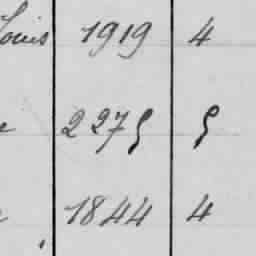 Louis 1919 4
e 2275 5
1844 4